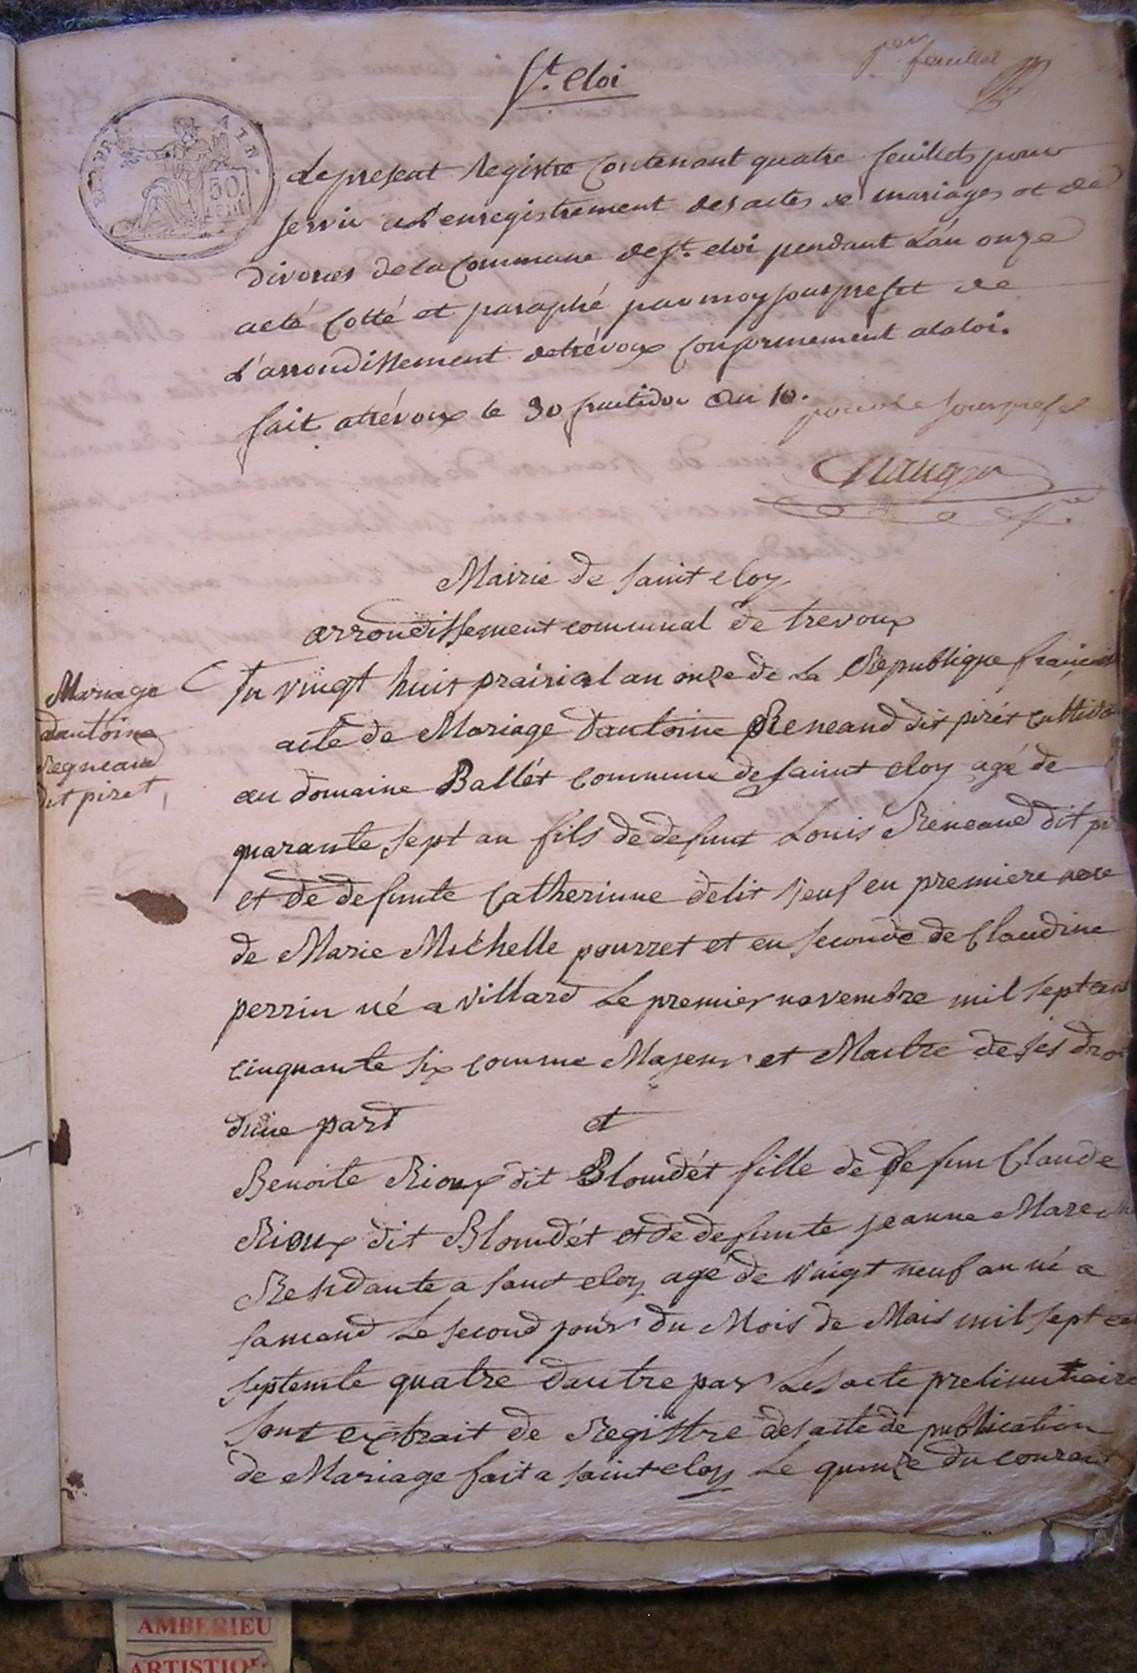 St. Eloi
per feuillet
RÉP. FRA
50
Le present Registre Contenant quatre feuillets pour
servir a L'enregistrement des actes de mariages et de
divorces de la Commune de St. eloi pendant L'an onze
a eté Cotté et paraphé par moy sousprefet de
L'arrondissement de trévoux Conformement a la loi.
fait a trévoux le 30 fructidor an 10.
pour le sousprefet
Mairie de saint eloy
arrondissement communal de trevoux
Mariage
dantoine
Regneaud
dit piret
Du vingt huit prairial an onze de La Republique française
acte de Mariage dantoine Reneaud dit pirét Cultiva
au domaine Ballét commune de saint eloy agé de
quarante sept an fils de defunt Louis Reneaud dit pi
et de defunte Catherinne delit veuf en premiere
de Marie Michelle pourret et en seconde de Claudine
perrin né a villard Le premier novembre mil sept cens
cinquante six comme Majeur et Maitre de ses dro
dune part et
Benoite Rioux dit Blondét fille de defun Claude
Rioux dit Blondét et de defunte jeanne Marec
Residante a saint eloy agé de vingt neuf an né a
samand Le second jour du Mois de Mais mil sept ce
septente quatre dautre par Les acte preliminaire
sont extrait de Registre des acte de publication
de Mariage fait a saint eloy Le quinze du courant
AMBERIEU
ARTISTIQ